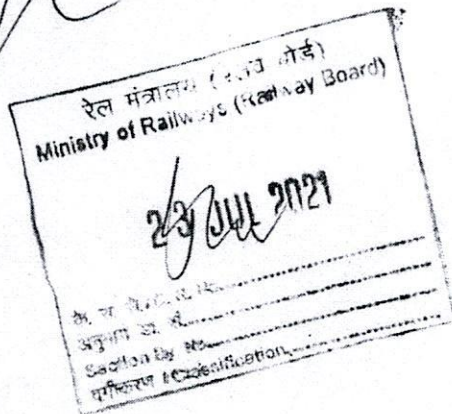 रेल मंत्रालय ( बोर्ड)
Ministry of Railways (Railway Board)
23 JUL 2021
अनुभाग डा. सं.
Section Dy. No.
वर्गीकरण / Classification